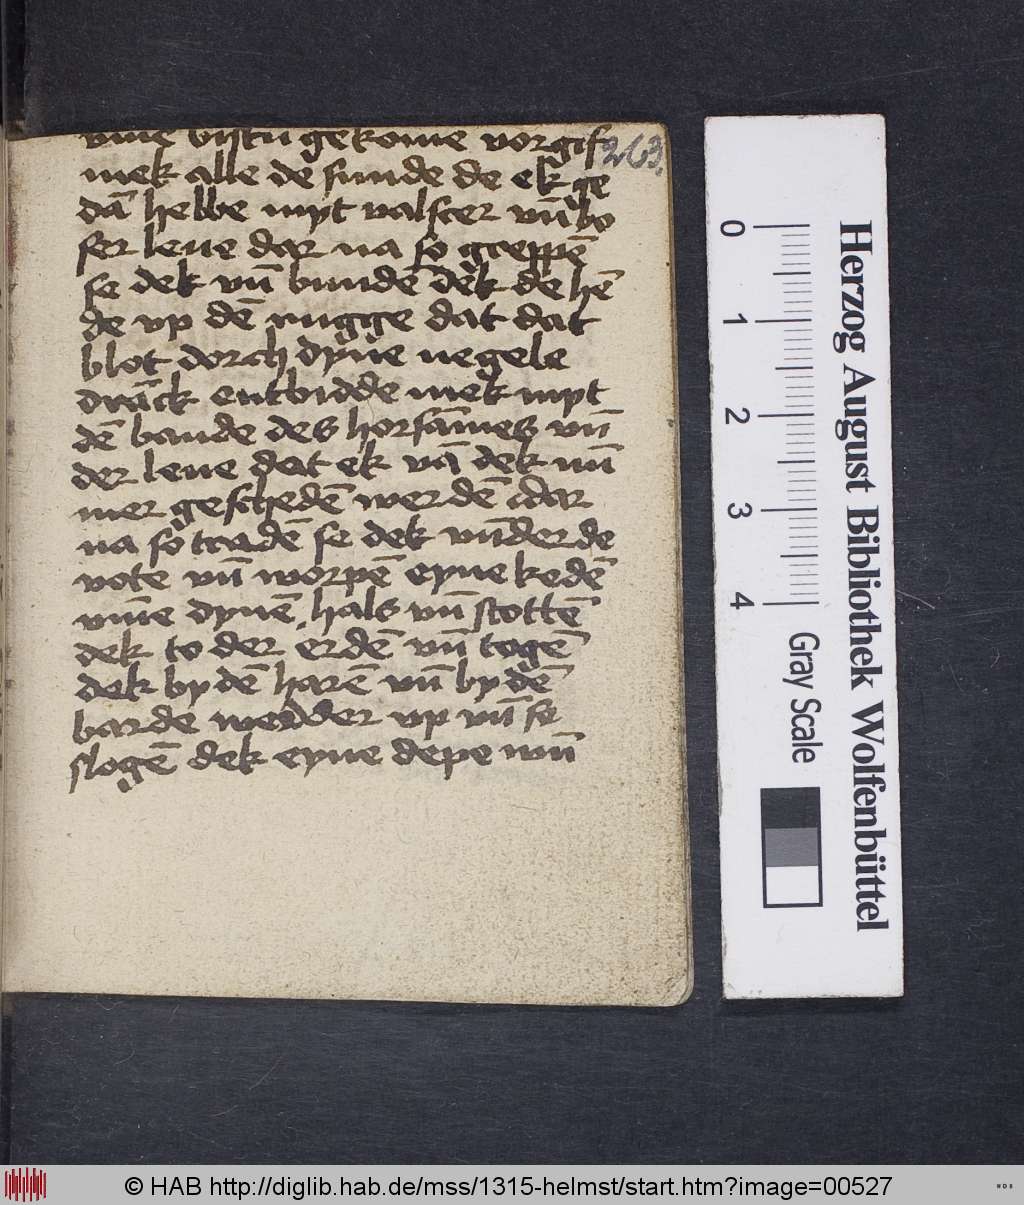 vm̄e bistu gekome vorgif
263.
mek alle de sunde de ek ge
dā hebbe myt valscer vn̄ bo
ser leue dar na so grepē
se dek vn̄ bundē dek de hē
de vp dē rugge dat dat
blot dorch dyne negele
dranck entbidde mek myt
dē bande des horsāmes vn̄
der leue dat ek vā dek nū
mer geschedē werdē dar
na so tradē se dek vnder de
vote vn̄ worpē eyne kedē
vm̄e dynē hals vn̄ stottē
dek to der erdē vn̄ togē
dek by dē harē vn̄ by dē
barde wedder vp vn̄ se
slogē dek eyne depe wū
0
1
2
3
4
Herzog August Bibliothek Wolfenbüttel
Gray Scale
© HAB http://diglib.hab.de/mss/1315-helmst/start.htm?image=00527